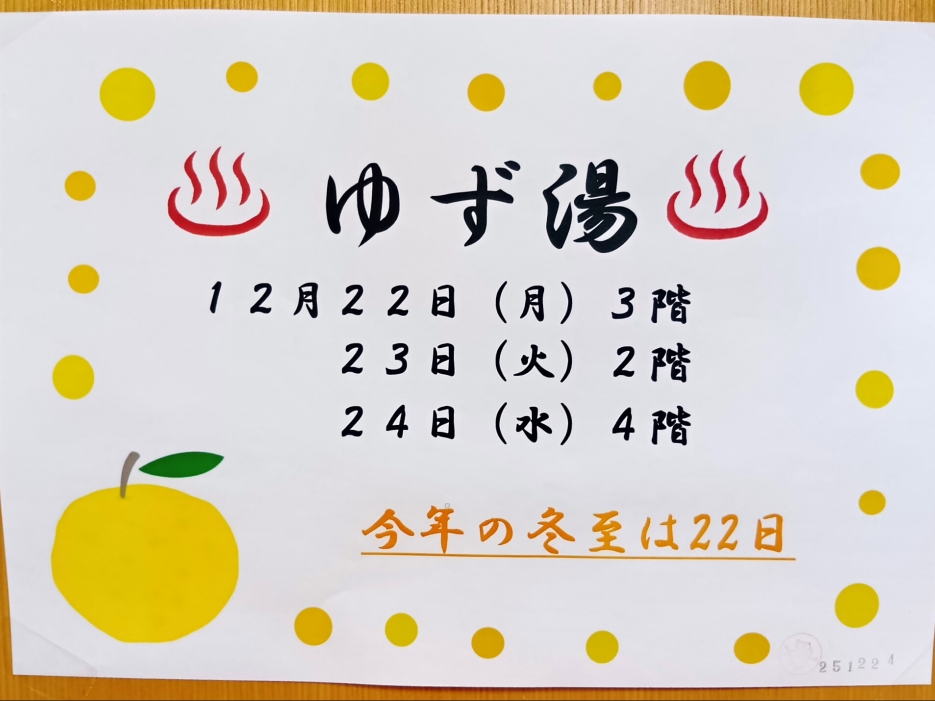 ゆず湯
12月22日(月) 3階
23日(火) 2階
24日(水) 4階
今年の冬至は22日
251224